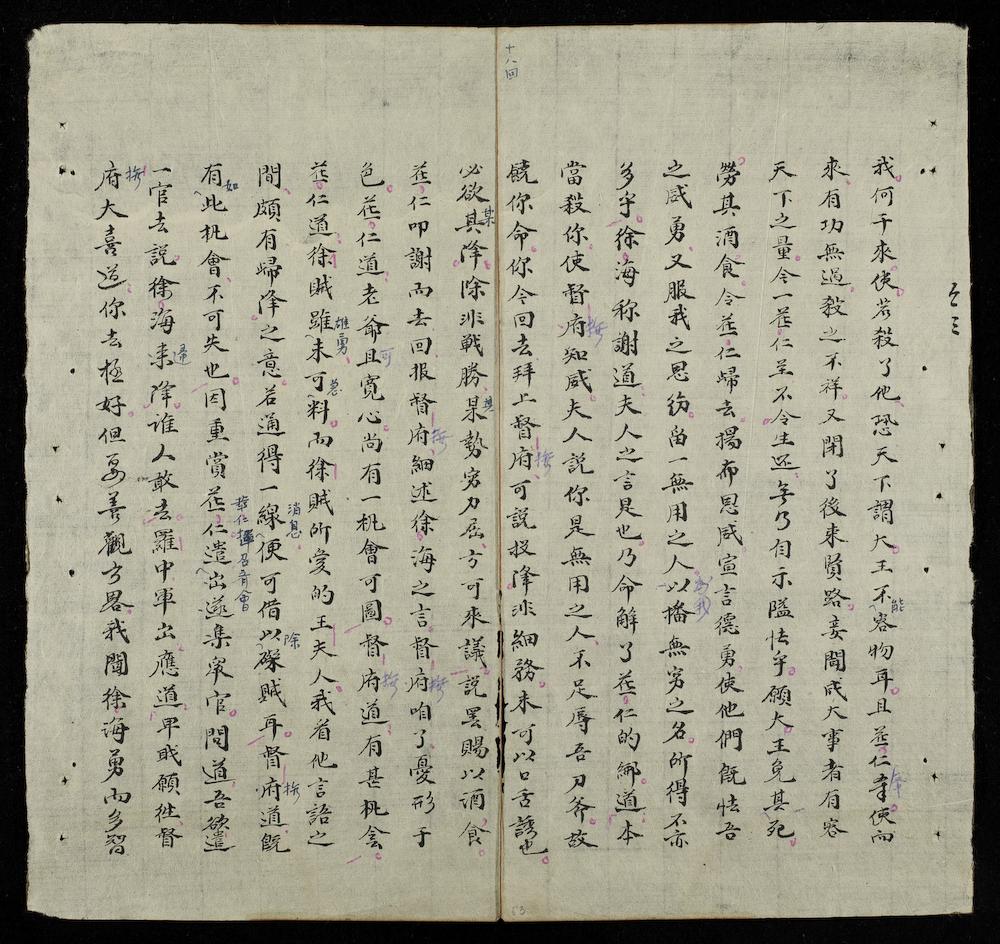 十八回
我何干來使若殺了他恐天下謂大王不容物耳且華仁奉使而
能
來有功無過殺之不祥又閉了後來賢路妾聞成大事者有容
天下之量今一華仁至不令生還無乃自示隘怯乎願大王免其死
勞其酒食令華仁歸去揚布恩威宣言德勇使他們既怯吾
之威勇又服我之恩紿留一無用之人以播無窮之名所得不亦
為我
多乎徐海称謝道夫人之言是也乃命解了華仁的綁道本
當殺你使督府知威夫人說你是無用之人不足辱吾刀斧故
撫
饒你命你今回去拜上督府可說投降非細務未可以口舌誘也
撫
必欲其降除非戰勝果勢窮力屈方可來議說罷賜以酒食
某
其
華仁叩謝而去回报督府細述徐海之言督府咱了憂形于
撫
撫
色華仁道老爺且寬心尚有一机會可圖督府道有甚机会
可
撫
華仁道徐賊雖未可料而徐賊所愛的王夫人我看他言語之
雄勇
間頗有歸降之意若通得一線便可借以磔賊耳督府道既
消息
除
撫
有此机會不可失也因重賞華仁遣出遂集眾官問道吾欲遣
如
華仁
一官去說徐海来降誰人敢去羅中軍出應道卑職願往督
歸
府大喜道你去極好但要善觀方畧我聞徐海勇而多智
撫
53